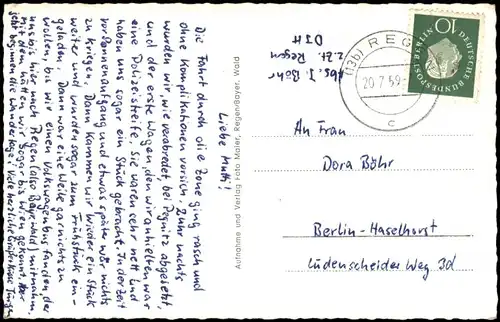 Liebe Mutti!
Die Fahrt durch die Zone ging rasch und
ohne Komplikationen vor sich. 2 Uhr nachts
wurden wir, wie verabredet bei Pegnitz abgesetzt,
und der erste Wagen, den wir anhielten war
eine Polizeistreife. Sie waren sehr nett und
haben uns sogar ein Stück gebracht. In der Zeit
vor Sonnenaufgang und etwas später war nichts
zu kriegen. Dann kamen wir wieder ein Stück
weiter und wurden sogar zum Frühstück ein-
geladen. Dann war eine Weile gar nichts zu
wollen, bis wir einen Volkswagenbus fanden der
uns bis hier nach Regen (also Bayr. Wald) mitnahm,
mit dem hätten wir sogar bis Wien gekonnt. Aber
jetzt beginnen die Wandertage! Viele herzliche Grüße
Aufnahme und Verlag Foto Wagner, Regen/Bayer. Wald
Abs. J. Böhr
z. Zt. Regen
DJH
(13b) REG
20.7.59
c
10
DEUTSCHE BUNDESPOST BERLIN
An Frau
Dora Böhr
Berlin-Haselhorst
Lüdenscheider Weg 3d